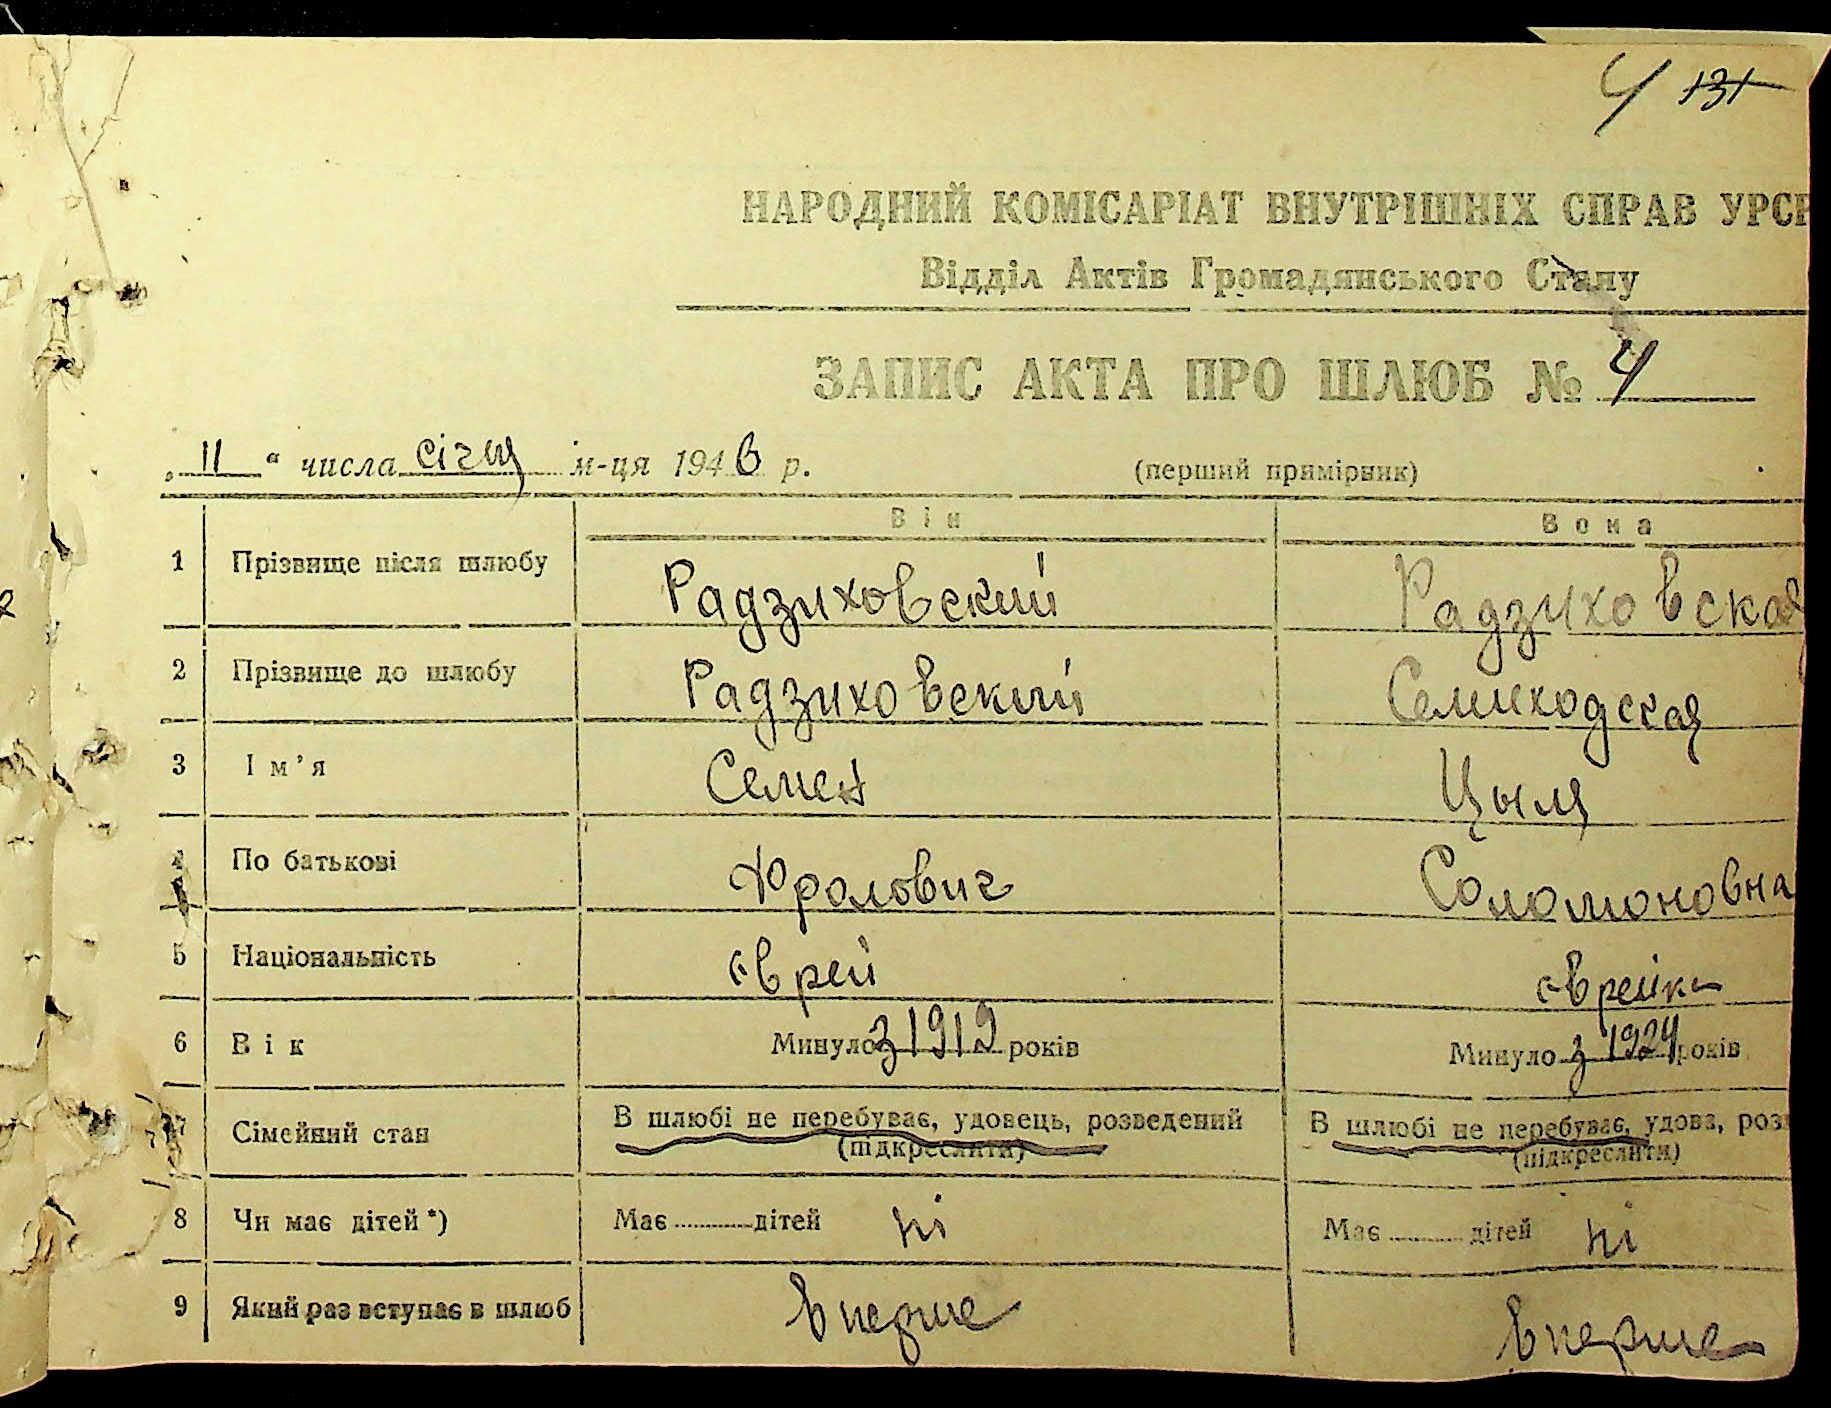 4 131
НАРОДНИЙ КОМІСАРІАТ ВНУТРІШНІХ СПРАВ УРСР
Відділ Актів Громадянського Стану
ЗАПИС АКТА ПРО ШЛЮБ № 4
„ 11 “ числа січня м-ця 1946 р. (перший примірник)
Він Вона
1 Прізвище після шлюбу Радзиховский Радзиховская
2 Прізвище до шлюбу Радзиховский Семиходская
3 Ім’я Семен Цыля
4 По батькові Фролович Соломоновна
5 Національність єврей єврейка
6 Вік Минуло з 1919 років Минуло з 1924 років
7 Сімейний стан В шлюбі не перебуває, удовець, розведений В шлюбі не перебуває, удова, роз
(підкреслити) (підкреслити)
8 Чи має дітей *) Має дітей ні Має дітей ні
9 Який раз вступає в шлюб вперше вперше